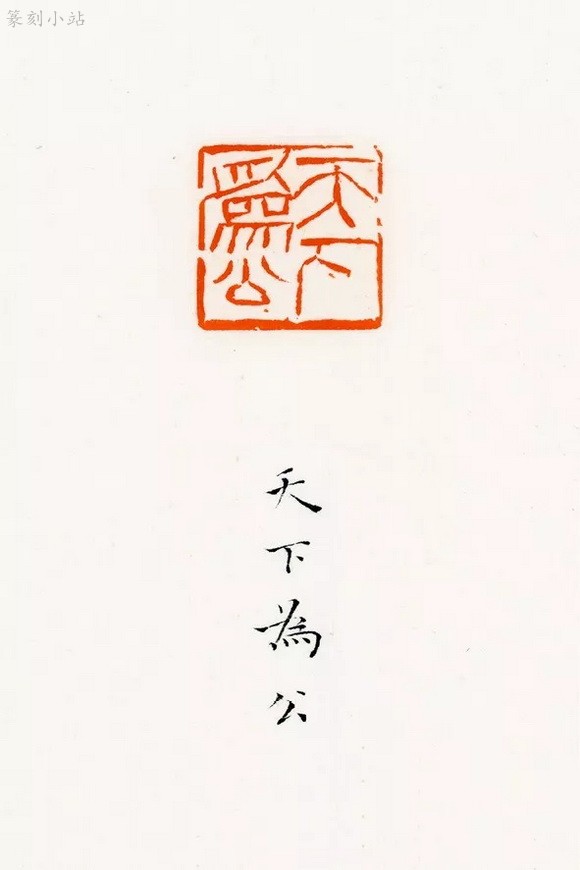 篆刻小站
天下為公
天下為公